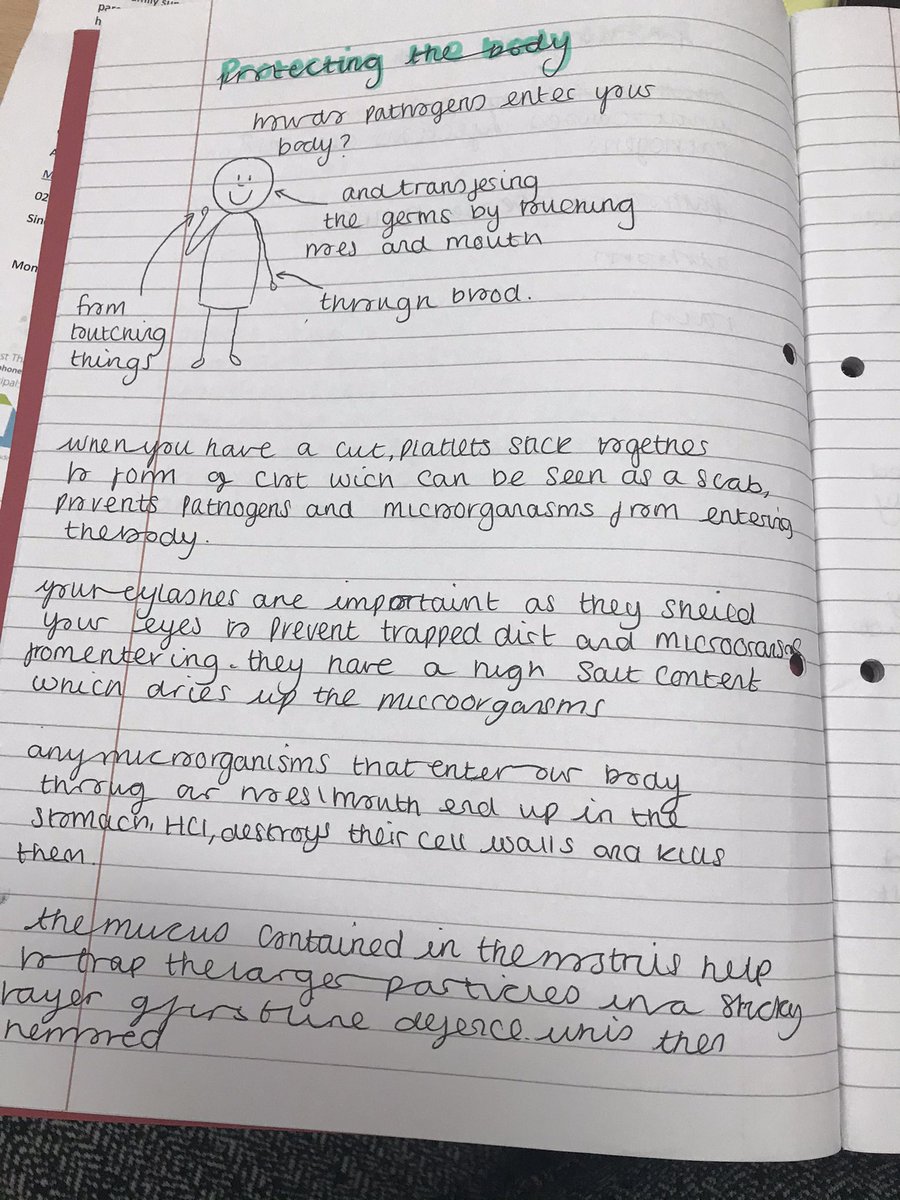 Protecting the body
how do pathogens enter your
body?
and transfesing
the germs by touching
noes and mouth
through blood.
from
toutching
things
when you have a cut, platlets stick together
to form a clot wich can be seen as a scab,
prevents pathogens and microorganasms from entering
the body.
your eylashes are importaint as they sheild
your eyes to prevent trapped dirt and
from entering. they have a high salt content
which dries up the microorgansms
any microorganisms that enter our body
throug our noes/mouth end up in the
stomach, HCl, destroys their cell walls and kills
them.
the mucus contained in the nostrils help
to trap the larger particles in a sticky
layer of first line defence. this then
02
Sin
Mon